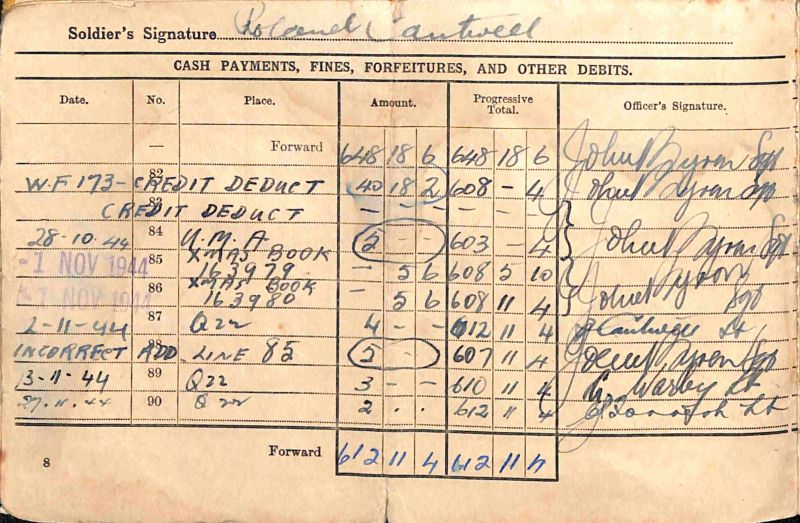 Soldier's Signature Roland Cantwell
CASH PAYMENTS, FINES, FORFEITURES, AND OTHER DEBITS.
Date. No. Place. Amount. Progressive Total. Officer's Signature.
— Forward 648 18 6 648 18 6 John
82 W.F 173 - CREDIT DEDUCT 40 18 2 608 - 4 John
83 CREDIT DEDUCT - - - - - -
28-10-44 84 U.M.A 5 - - 603 - 4 John
-1 NOV 1944 85 XMAS BOOK 163979 - 5 6 608 5 10
-1 NOV 1944 86 XMAS BOOK 163980 - 5 6 608 11 4 John
2-11-44 87 Q22 4 - - 612 11 4 Lt
INCORRECT ADD. 88 LINE 85 5 - - 607 11 4
3-11-44 89 Q22 3 - - 610 11 4 Warby Lt
27.11.44 90 Q22 2 . . 612 11 4 Lt
Forward 612 11 4 612 11 4
8